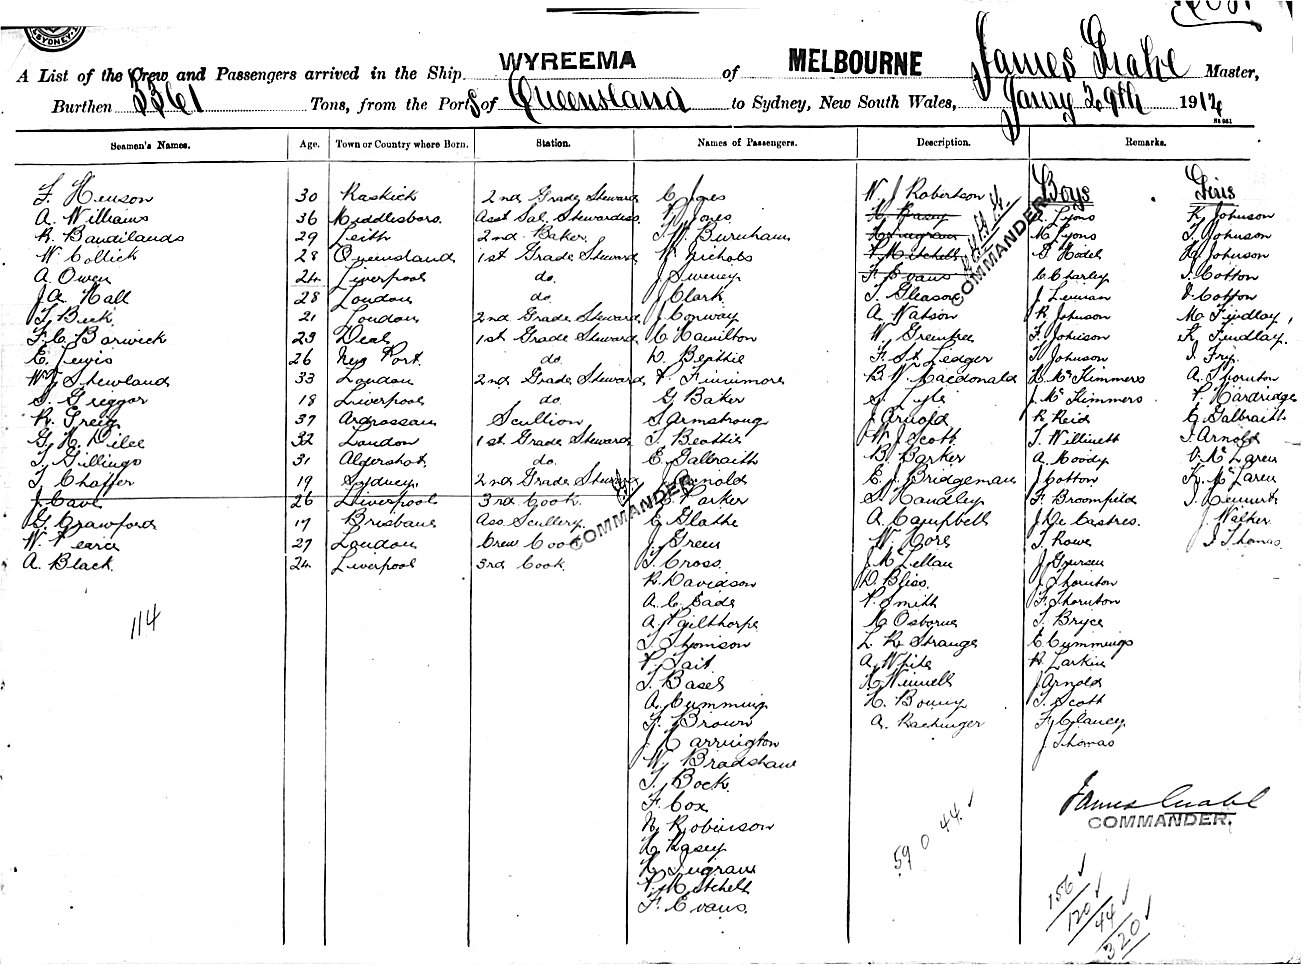 SYDNEY
A List of the Crew and Passengers arrived in the Ship WYREEMA of MELBOURNE James Grahl Master,
Burthen 3361 Tons, from the Ports of Queensland to Sydney, New South Wales, Jany 29th 1912
Seamen's Names. Age. Town or Country where Born. Station. Names of Passengers. Description. Remarks.
Boys Girls
F. Henson 30 2nd Grade Steward C Jones W. J Robertson A Lyons K Johnson
A. Williams 36 Middlesboro. Asst Sal. Stewardess Jones H Kasey M Lyons J. Johnson
R. Bandilands 29 Leith 2nd Baker Burnham H Ingram Johnson
W. Collick 28 Queensland 1st Grade Steward Nichols Mitchell C Charley J. Cotton
A. Owen 24 Liverpool do. J Sweney F. Evans J Cotton
J. A. Hall 28 London do. J Clark T. Gleason R Johnson M Findlay
T. Beck 21 London 2nd Grade Steward J Conway A. Watson F. Johnson K Findlay
F. C. Barwick 23 Deal 1st Grade Steward C Hamilton W. Greentree Johnson J. Fry.
E. Lewis 26 New Port do. D Beattie F. St Ledger McKimmers A. Thornton
W. J. Shewland 33 London 2nd Grade Steward Finnimore R. W. Macdonald J. McKimmers Hardridge
S. Greggor 18 Liverpool do. G Baker S. Lyle R Reid E Galbraith
R. Greig 37 Ardrossan Scullion S Armstrong J. Arnold J. Willinett J. Arnold
G. H. Dilee 32 London 1st Grade Steward J. Beattie W J Scott A. Coody McLaren
T. Gillings 31 Aldershot. do. E. Galbraith B. Barker J Cotton K. McLaren
T. Chaffer 19 Sydney. 2nd Grade Steward J. Arnold E. J. Bridgeman F Broomfield
J. Cave 26 Liverpool 3rd Cook Parker S. Handley J De Castres. J Walker
G. Crawford 17 Brisbane Ass. Scullery E Glathe A. Campbell J. Rowe J Thomas
W. Pearce 27 London Crew Cook J. Green W. Core
A. Black. 24 Liverpool 3rd Cook J. Cross J. McLellan J Thornton
COMMANDER
COMMANDER
R. Davidson D. Bliss. F. Thornton
A. C. Eade P. Smith J. Bryce
A. Gilthorpe M Osborne E Cummings
J. Thomson L. R. Strange R. Larkin
P. Tait A. White J Arnold
J. Basel H. Winnell J. Scott
A. Cumming H. Bouny F. Clancy
F. Brown A. Rachinger J Thomas
J. Carrington
W. Bradshaw
T. Bock.
F. Cox
N. Robinson
H Kasey
H. Ingram
P. Mitchell
F. Evans.
114
59 0 44
James Grahl
COMMANDER.
156
120
44
320